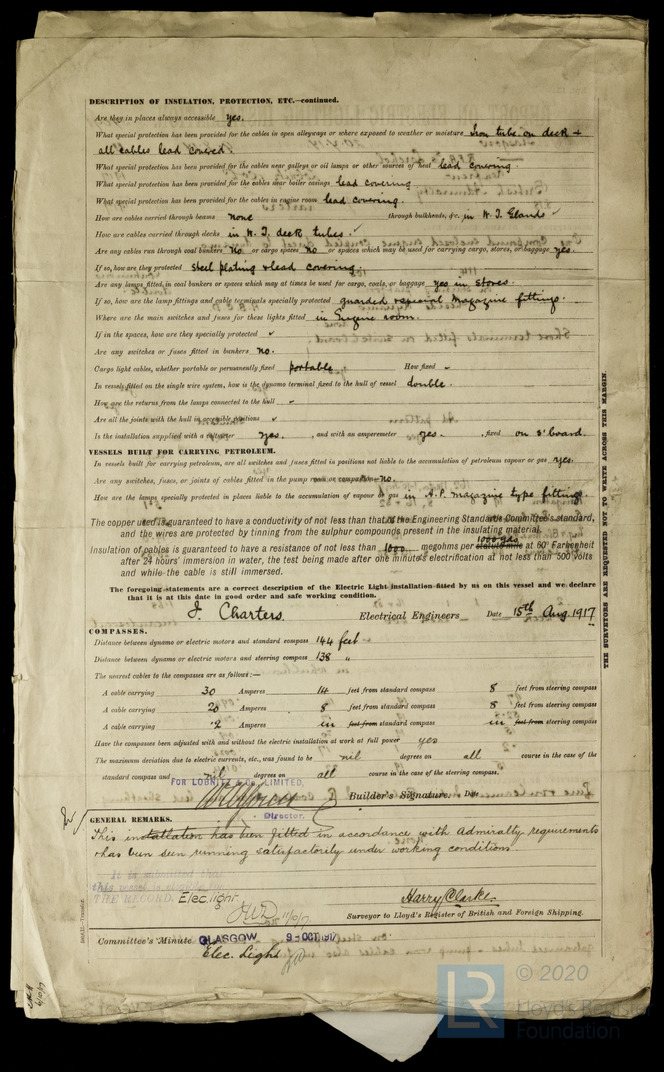 DESCRIPTION OF INSULATION, PROTECTION, ETC.—continued.
Are they in places always accessible yes.
What special protection has been provided for the cables in open alleyways or where exposed to weather or moisture Iron tube on deck +
all cables lead covered
What special protection has been provided for the cables near galleys or oil lamps or other sources of heat lead covering.
What special protection has been provided for the cables near boiler casings lead covering
What special protection has been provided for the cables in engine room lead covering.
How are cables carried through beams none through bulkheads, &c. in W.T. Glands ✓
How are cables carried through decks in W.T. deck tubes. ✓
Are any cables run through coal bunkers no or cargo spaces no or spaces which may be used for carrying cargo, stores, or baggage yes.
If so, how are they protected steel plating & lead covering.
Are any lamps fitted in coal bunkers or spaces which may at times be used for cargo, coals, or baggage yes in stores.
If so, how are the lamp fittings and cable terminals specially protected guarded & special magazine fittings.
Where are the main switches and fuses for these lights fitted in Engine room.
If in the spaces, how are they specially protected ✓
Are any switches or fuses fitted in bunkers no.
Cargo light cables, whether portable or permanently fixed portable How fixed -
In vessels fitted on the single wire system, how is the dynamo terminal fixed to the hull of vessel double.
How are the returns from the lamps connected to the hull ✓
Are all the joints with the hull in accessible positions ✓
Is the installation supplied with a voltmeter yes. , and with an amperemeter yes. , fixed on S' board.
VESSELS BUILT FOR CARRYING PETROLEUM.
In vessels built for carrying petroleum, are all switches and fuses fitted in positions not liable to the accumulation of petroleum vapour or gas yes.
Are any switches, fuses, or joints of cables fitted in the pump room or companion no.
How are the lamps specially protected in places liable to the accumulation of vapour or gas in A.P. magazine type fittings.
The copper used is guaranteed to have a conductivity of not less than that of the Engineering Standards Committee's standard,
and the wires are protected by tinning from the sulphur compounds present in the insulating material.
1000 yds
Insulation of cables is guaranteed to have a resistance of not less than 1000 megohms per statute mile at 60° Farhenheit
after 24 hours' immersion in water, the test being made after one minute's electrification at not less than 500 volts
and while the cable is still immersed.
The foregoing statements are a correct description of the Electric Light installation fitted by us on this vessel and we declare
that it is at this date in good order and safe working condition.
J. Charters. Electrical Engineers Date 15th Aug. 1917
COMPASSES.
Distance between dynamo or electric motors and standard compass 144 feet
Distance between dynamo or electric motors and steering compass 138 "
The nearest cables to the compasses are as follows:—
A cable carrying 30 Amperes 14 feet from standard compass 8 feet from steering compass
A cable carrying 20 Amperes 8 feet from standard compass 8 feet from steering compass
A cable carrying ·2 Amperes in feet from standard compass in feet from steering compass
Have the compasses been adjusted with and without the electric installation at work at full power yes
The maximum deviation due to electric currents, etc., was found to be nil degrees on all course in the case of the
standard compass and nil degrees on all course in the case of the steering compass.
FOR LOBNITZ & CO. LIMITED,
Builder's Signature. Date
Director.
GENERAL REMARKS.
This installation has been fitted in accordance with Admiralty requirements
& has been seen running satisfactorily under working conditions
It is submitted that
this vessel is eligible for
THE RECORD. Elec. light.
11/10/17
Harry Clarke.
Surveyor to Lloyd's Register of British and Foreign Shipping.
Committee's Minute GLASGOW 9 - OCT 1917
Elec. Light
THE SURVEYORS ARE REQUESTED NOT TO WRITE ACROSS THIS MARGIN.
LR
© 2020
Lloyd's Register
Foundation